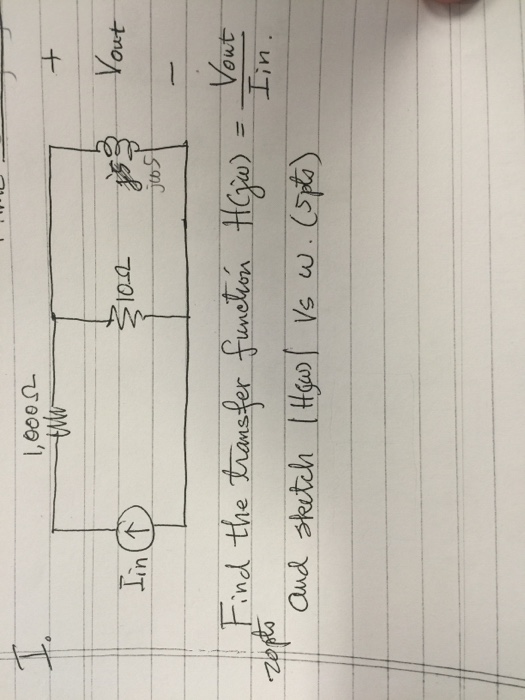 I.
1,000Ω
+
Iin
10Ω
jω5
Vout
−
Find the transfer function H(jω) = Vout / Iin.
20pts
and sketch |H(jω)| Vs ω. (5pts)